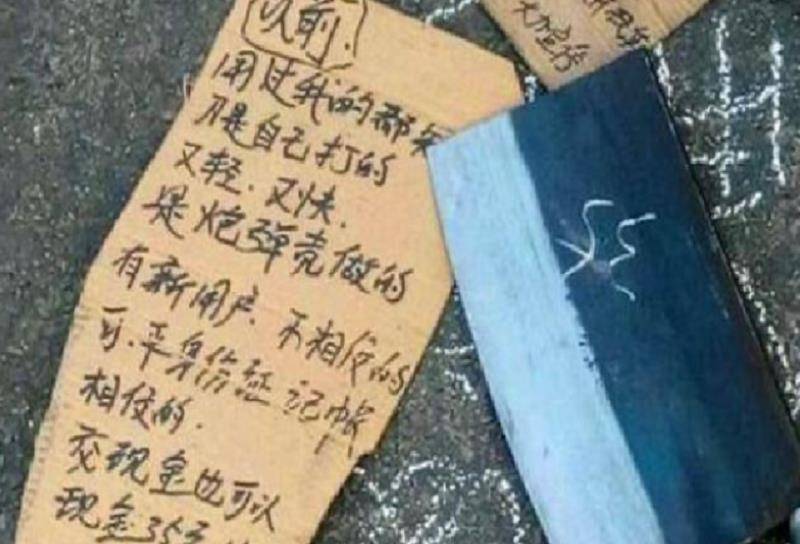 以前.
用过我的都知
刀是自己打的
又轻.又快.
是炮弹壳做的
有新用户.不相信的
可.平身份证记帐
相信的.
交现金也可以
现金35元
大力宣传